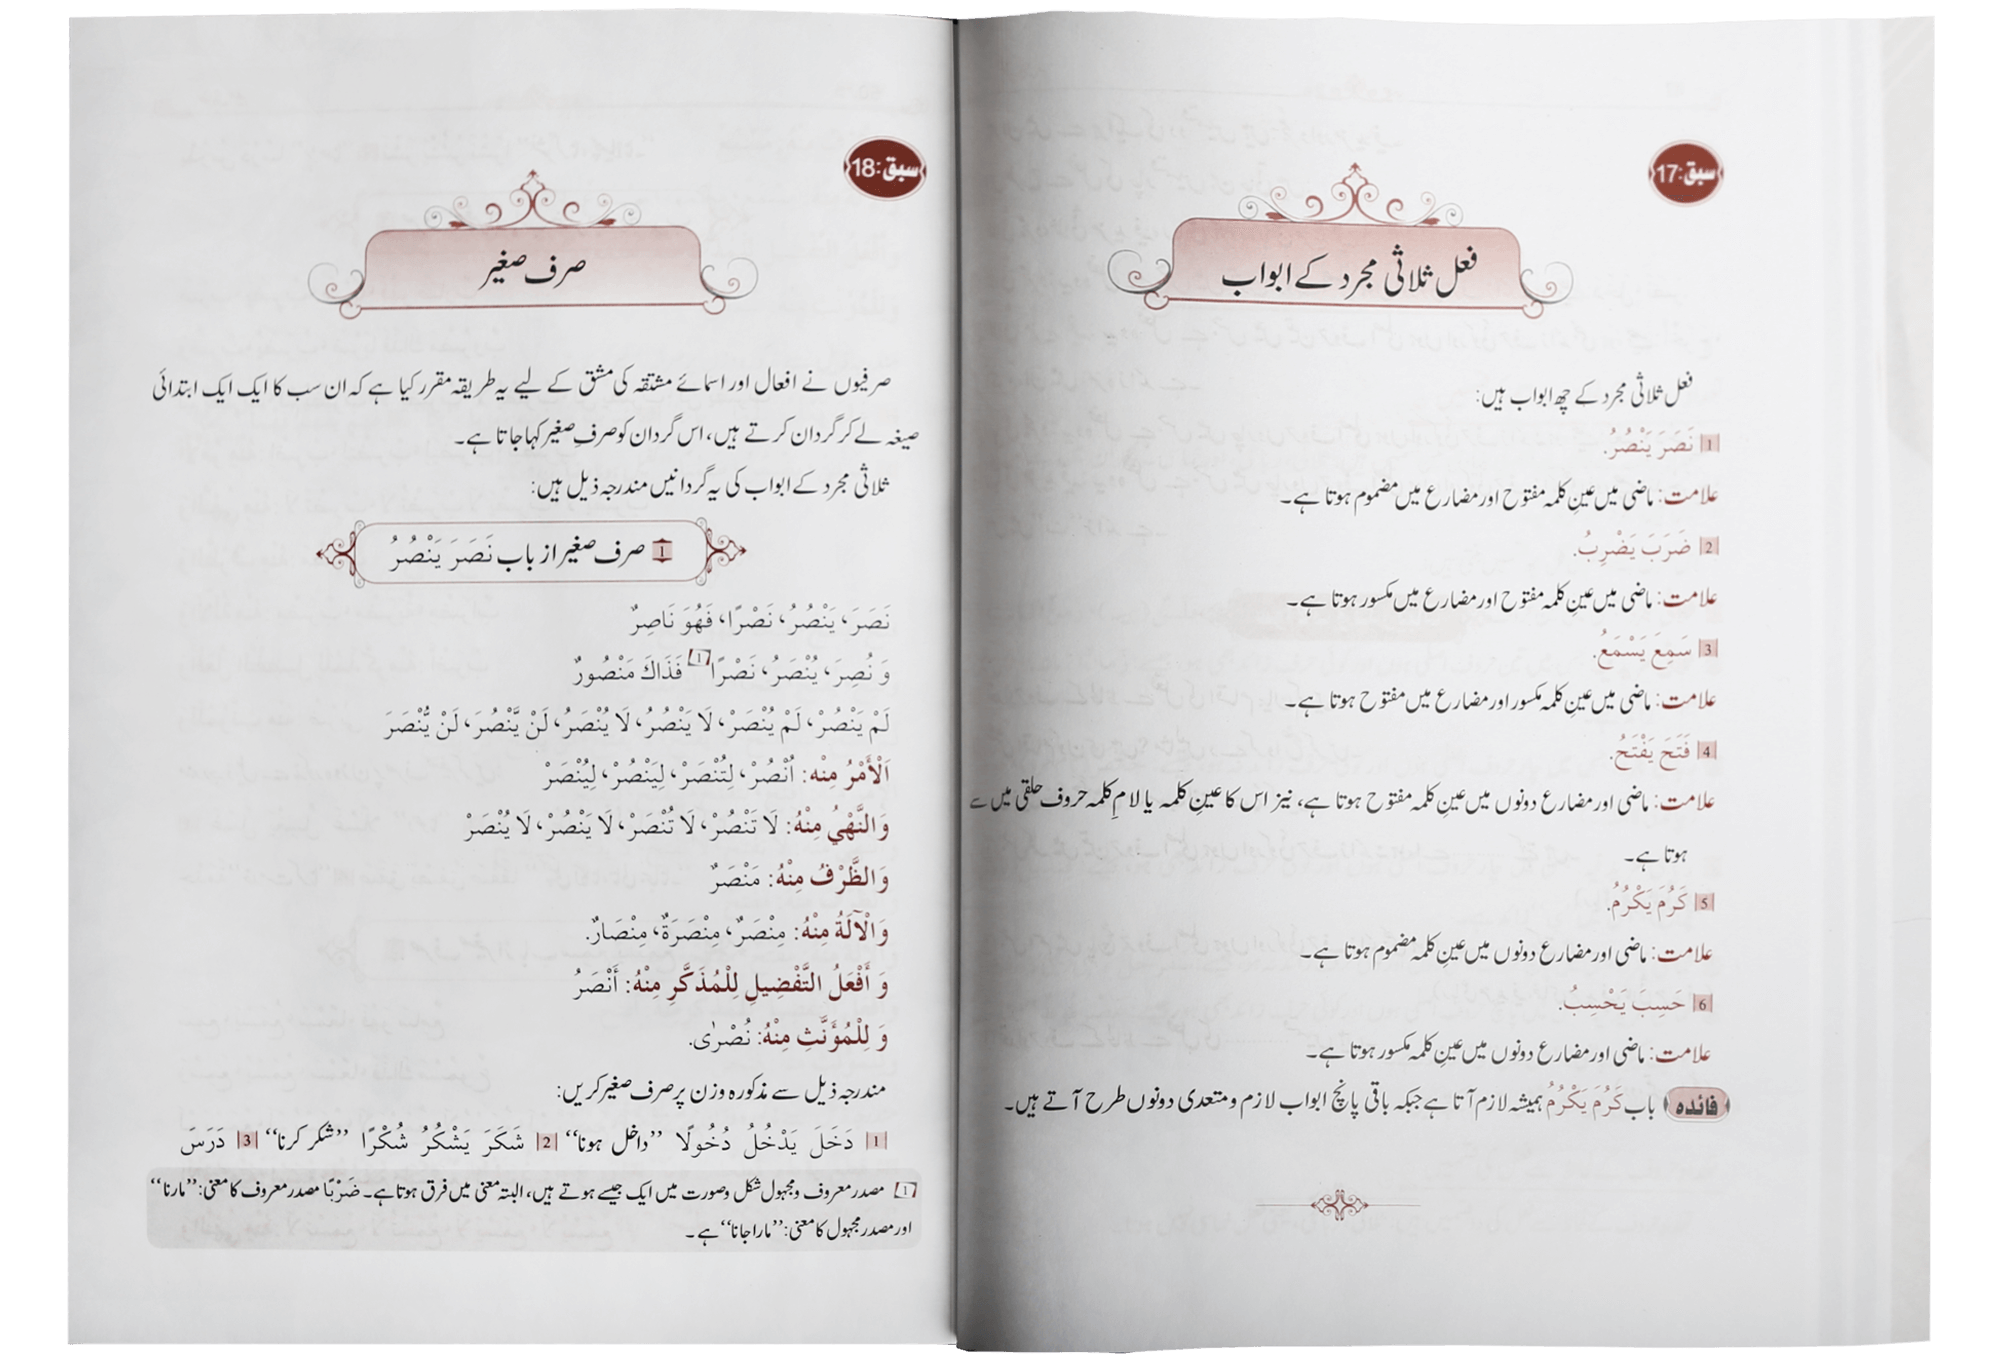 سبق:17
فعل ثلاثی مجرد کے ابواب
فعل ثلاثی مجرد کے چھ ابواب ہیں:
1 نَصَرَ يَنْصُرُ.
علامت: ماضی میں عینِ کلمہ مفتوح اور مضارع میں مضموم ہوتا ہے۔
2 ضَرَبَ يَضْرِبُ.
علامت: ماضی میں عینِ کلمہ مفتوح اور مضارع میں مکسور ہوتا ہے۔
3 سَمِعَ يَسْمَعُ.
علامت: ماضی میں عینِ کلمہ مکسور اور مضارع میں مفتوح ہوتا ہے۔
4 فَتَحَ يَفْتَحُ.
علامت: ماضی اور مضارع دونوں میں عینِ کلمہ مفتوح ہوتا ہے، نیز اس کا عینِ کلمہ یا لامِ کلمہ حروف حلقی میں سے
ہوتا ہے۔
5 كَرُمَ يَكْرُمُ.
علامت: ماضی اور مضارع دونوں میں عینِ کلمہ مضموم ہوتا ہے۔
6 حَسِبَ يَحْسِبُ.
علامت: ماضی اور مضارع دونوں میں عینِ کلمہ مکسور ہوتا ہے۔
فائدہ باب كَرُمَ يَكْرُمُ ہمیشہ لازم آتا ہے جبکہ باقی پانچ ابواب لازم و متعدی دونوں طرح آتے ہیں۔
سبق:18
صرف صغیر
صرفیوں نے افعال اور اسمائے مشتقہ کی مشق کے لیے یہ طریقہ مقرر کیا ہے کہ ان سب کا ایک ایک ابتدائی
صیغہ لے کر گردان کرتے ہیں، اس گردان کو صرفِ صغیر کہا جاتا ہے۔
ثلاثی مجرد کے ابواب کی یہ گردانیں مندرجہ ذیل ہیں:
1 صرف صغیر از باب نَصَرَ يَنْصُرُ
نَصَرَ، يَنْصُرُ، نَصْرًا، فَهُوَ نَاصِرٌ
وَ نُصِرَ، يُنْصَرُ، نَصْرًا 1 فَذَاكَ مَنْصُورٌ
لَمْ يَنْصُرْ، لَمْ يُنْصَرْ، لَا يَنْصُرُ، لَا يُنْصَرُ، لَنْ يَّنْصُرَ، لَنْ يُّنْصَرَ
اَلْأَمْرُ مِنْه: اُنْصُرْ، لِتُنْصَرْ، لِيَنْصُرْ، لِيُنْصَرْ
وَالنَّهْيُ مِنْهُ: لَا تَنْصُرْ، لَا تُنْصَرْ، لَا يَنْصُرْ، لَا يُنْصَرْ
وَالظَّرْفُ مِنْهُ: مَنْصَرٌ
وَالْآلَةُ مِنْهُ: مِنْصَرٌ، مِنْصَرَةٌ، مِنْصَارٌ.
وَ أَفْعَلُ التَّفْضِيلِ لِلْمُذَكَّرِ مِنْهُ: أَنْصَرُ
وَ لِلْمُؤَنَّثِ مِنْهُ: نُصْرٰى.
مندرجہ ذیل سے مذکورہ وزن پر صرف صغیر کریں:
1 دَخَلَ يَدْخُلُ دُخُولًا ”داخل ہونا“ 2 شَكَرَ يَشْكُرُ شُكْرًا ”شکر کرنا“ 3 دَرَسَ
1 مصدر معروف و مجہول شکل و صورت میں ایک جیسے ہوتے ہیں، البتہ معنی میں فرق ہوتا ہے۔ ضَرْبًا مصدر معروف کا معنی: ”مارنا“
اور مصدر مجہول کا معنی: ”مارا جانا“ ہے۔